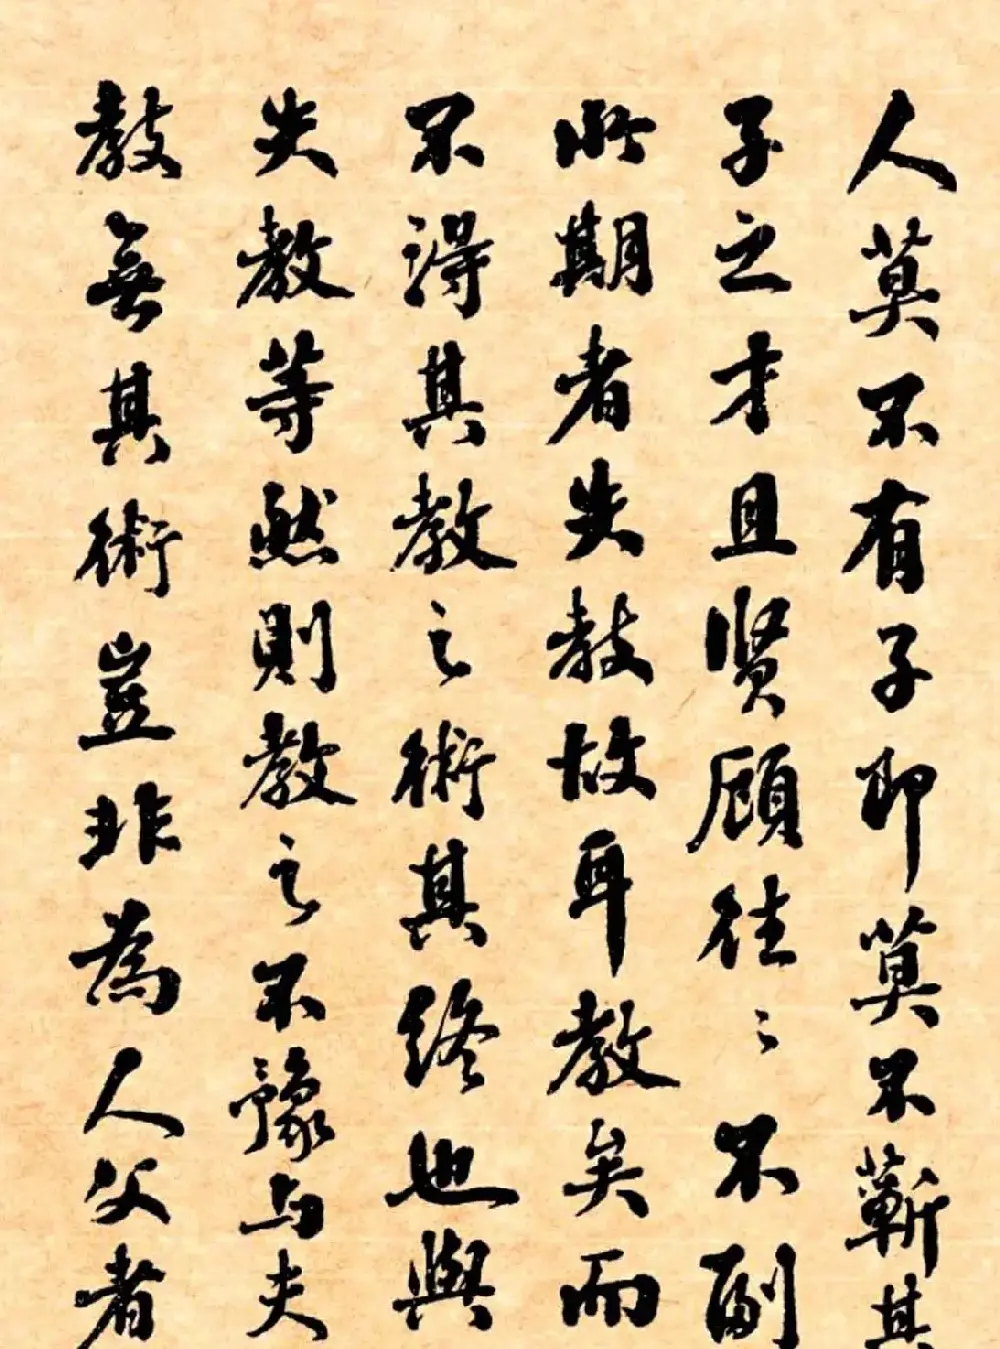 人莫不有子即莫不蘄其
子之才且賢顧往〻不副
此期者失教故耳教矣而
不得其教之術其終也與
失教等然則教之不豫与夫
教無其術豈非為人父者